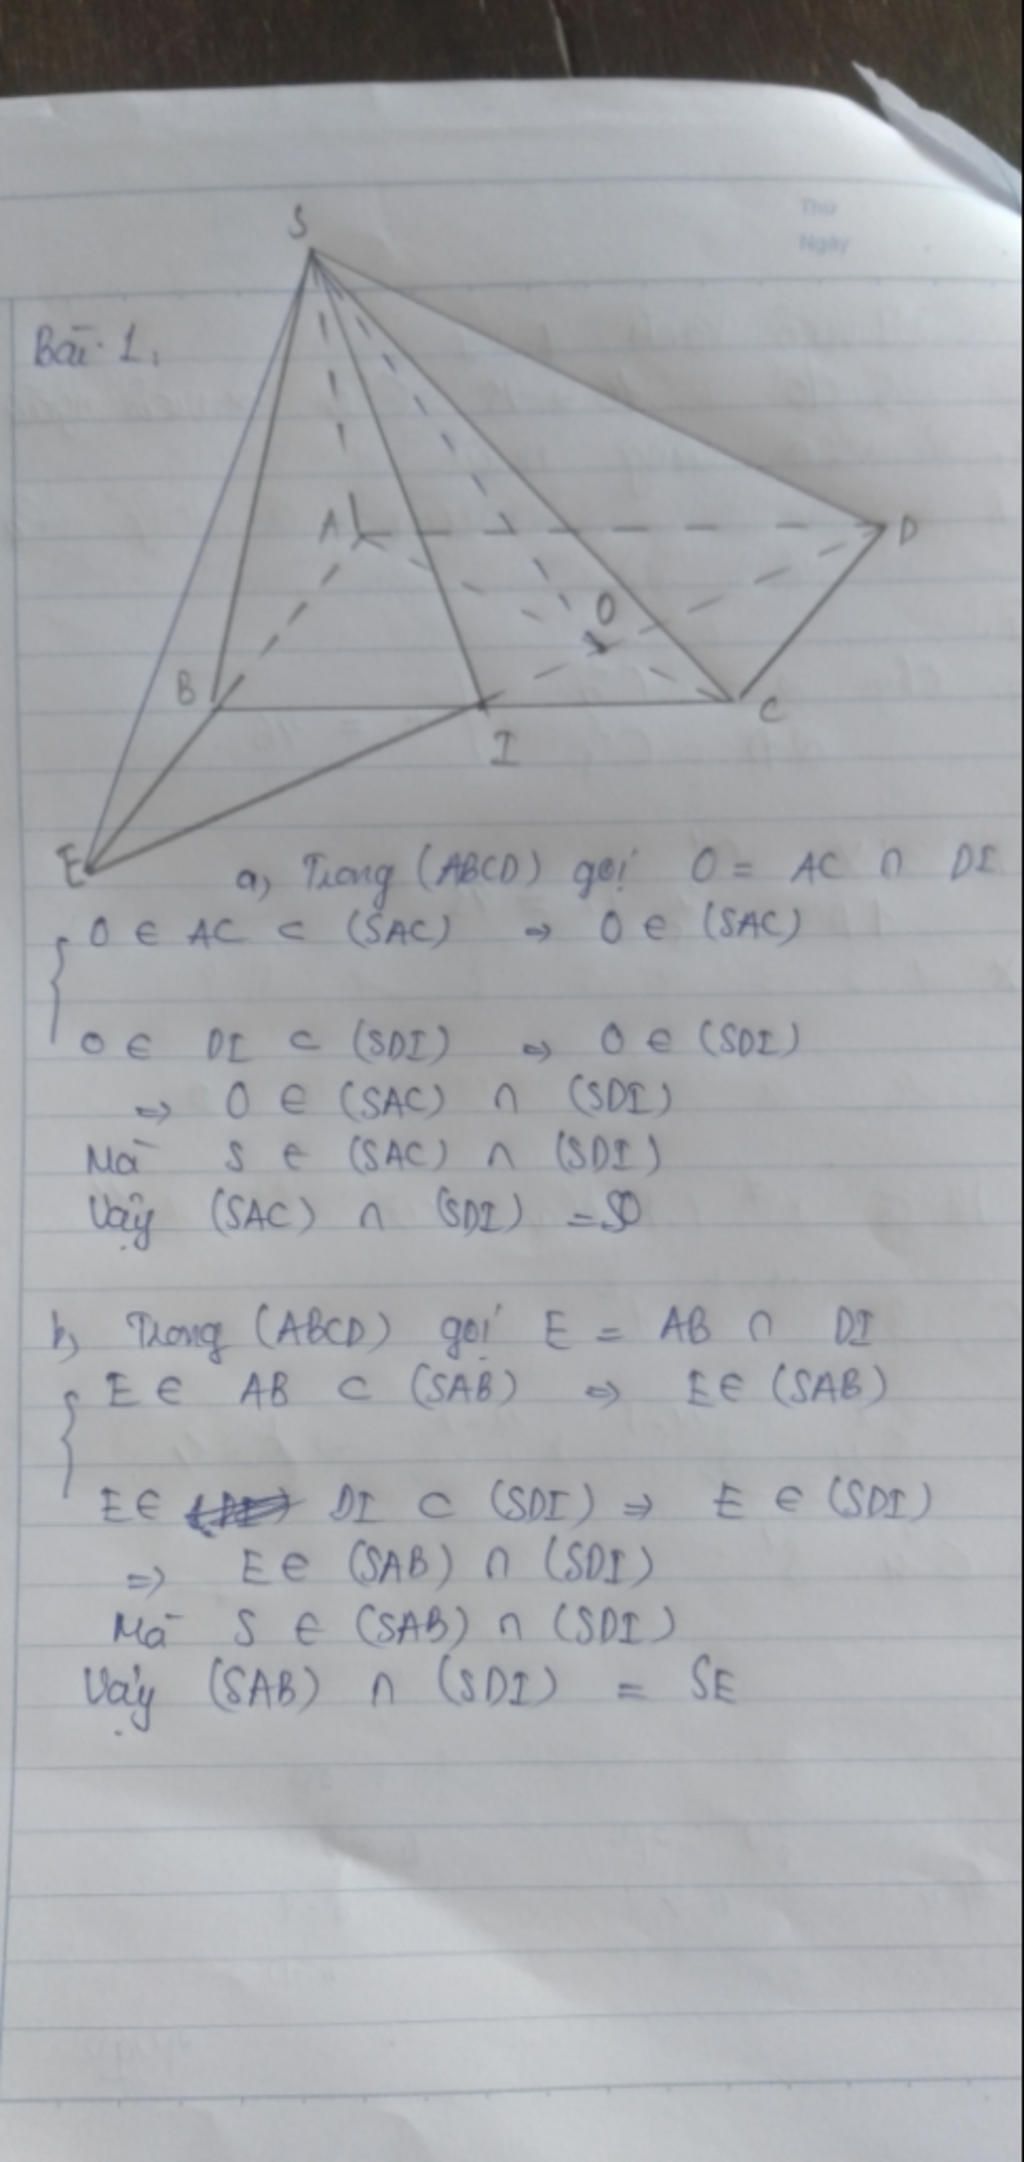 Thứ
Ngày
S
Bài 1.
A
D
O
B
C
I
E
a, Trong (ABCD) gọi O = AC ∩ DI
O ∈ AC ⊂ (SAC) ⇒ O ∈ (SAC)
O ∈ DI ⊂ (SDI) ⇒ O ∈ (SDI)
⇒ O ∈ (SAC) ∩ (SDI)
Mà S ∈ (SAC) ∩ (SDI)
Vậy (SAC) ∩ (SDI) = SO
b, Trong (ABCD) gọi E = AB ∩ DI
E ∈ AB ⊂ (SAB) ⇒ E ∈ (SAB)
E ∈ DI ⊂ (SDI) ⇒ E ∈ (SDI)
⇒ E ∈ (SAB) ∩ (SDI)
Mà S ∈ (SAB) ∩ (SDI)
Vậy (SAB) ∩ (SDI) = SE